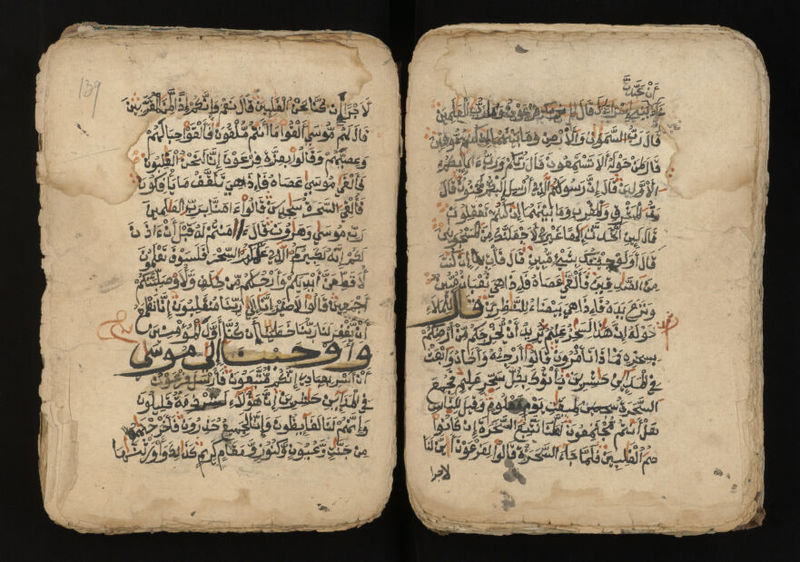 أن عبدت
بني إسراءيل قال فرعون وما رب العلمين
قال رب السموت والأرض وما بينهما إن كنتم موقنين
قال لمن حوله ألا تستمعون قال ربكم ورب ءابائكم
الأولين قال إن رسولكم الذي أرسل إليكم لمجنون قال
رب المشرق والمغرب وما بينهما إن كنتم تعقلون
قال لئن اتخذت إلها غيري لأجعلنك من المسجونين
قال أولو جئتك بشيء مبين قال فأت به إن كنت
من الصدقين فألقى عصاه فإذا هي ثعبان مبين
ونزع يده فإذا هي بيضاء للنظرين قال للملإ
حوله إن هذا لسحر عليم يريد أن يخرجكم من أرضكم
بسحره فماذا تأمرون قالوا أرجه وأخاه وابعث
في المدائن حشرين يأتوك بكل سحر عليم فجمع
السحرة لميقت يوم معلوم وقيل للناس
هل أنتم مجتمعون لعلنا نتبع السحرة إن كانوا
هم الغلبين فلما جاء السحرة قالوا لفرعون أين لنا
لاجرا
139
لأجرا إن كنا نحن الغلبين قال نعم وإنكم إذا لمن المقربين
قال لهم موسى ألقوا ما أنتم ملقون فألقوا حبالهم
وعصيهم وقالوا بعزة فرعون إنا لنحن الغلبون
فألقى موسى عصاه فإذا هي تلقف ما يأفكون
فألقي السحرة سجدين قالوا ءامنا برب العلمين
رب موسى وهرون قال ءامنتم له قبل أن ءاذن
لكم إنه لكبيركم الذي علمكم السحر فلسوف تعلمون
لأقطعن أيديكم وأرجلكم من خلف ولأوصلبنكم
أجمعين قالوا لا ضير إنا إلى ربنا منقلبون إنا نطمع
أن يغفر لنا ربنا خطينا أن كنا أول المؤمنين
وأوحينا إلى موسى
أن أسر بعبادي إنكم متبعون فأرسل فرعون
في المدائن حشرين إن هؤلاء لشرذمة قليلون
وإنهم لنا لغائظون وإنا لجميع حذرون فأخرجنهم
من جنت وعيون وكنوز ومقام كريم كذلك وأورثنها